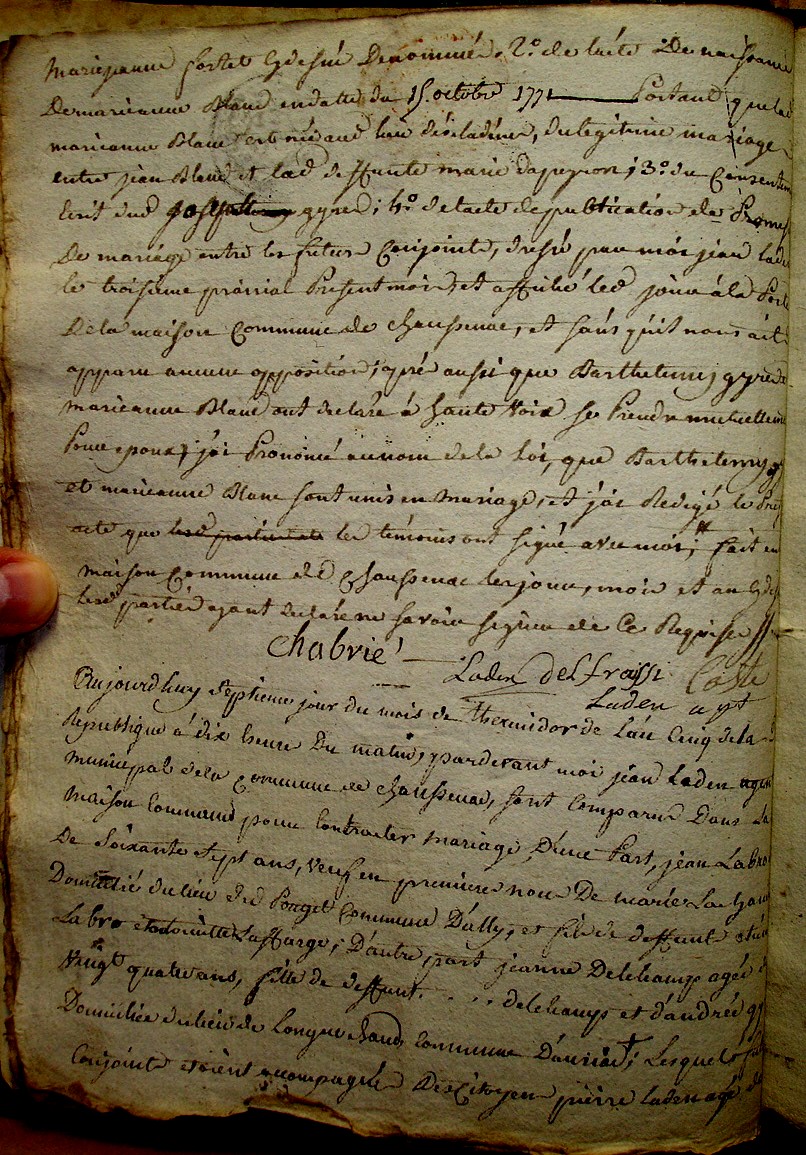 mariejeanne fortet Cydessus Denommée. 2.º de lacte De naissance
De marieanne Blanc en datte du 15. octobre 1771 Portant que lad
marieanne Blanc est née aud lieu d'escladines, du legitime mariage
entre jean Blanc et lad deffunte marie dapeyron; 3.º du Consentem
Ecrit dud joseph gyres; 4.º de lacte de publication de la Promes
De mariage entre les futurs Conjoints, dressé par moi jean laden
le troisieme prairial Present mois, et affiché led jour à la Porte
De la maison Commune de Chaussenac, et sans qu'il nous ait
apparu aucune opposition; apré aussi que Barthelemy gyres
marieanne Blanc ont declaré à haute voix se Prendre mutuellem
Pour epoux, j'ai Prononcé au nom de la loi, que Barthelemy gy
et marieanne Blanc sont unis en mariage, et j'ai Redigé le Pres
acte que lesd parties et les temoins ont signé avec moi; fait en
maison Commune dud Chaussenac les jour, mois et an Cydes
lesd parties ayant declaré ne savoir signer de Ce Requises
Chabrié Laden delfraissi Coste
Laden a pt
Aujourdhuy Septieme jour du mois de thermidor de l'an Cinq de la
Republique à dix heure Du matin, pardevant moi jean Laden agen
municipal de la Commune de Chaussenac, sont Comparus Dans La
maison Commune pour Contracter mariage, D'une Part, jean Labro
De Soixante Sept ans, veuf en premieres noces De marie La
Domicilié du lieu del Pouget Commune D'ally, et fils de deffunt
Labro et toinette Laffarge; D'autre part jeanne Delchamp agée
vingt quatre ans, fille de deffunt. . . . delchamps et d'andrée gy
Domiciliée du lieu de Longuechaud Commune D'auriac; Lesquels fut
Conjoints etoient accompagnés Des Citoyens pierre laden agé de